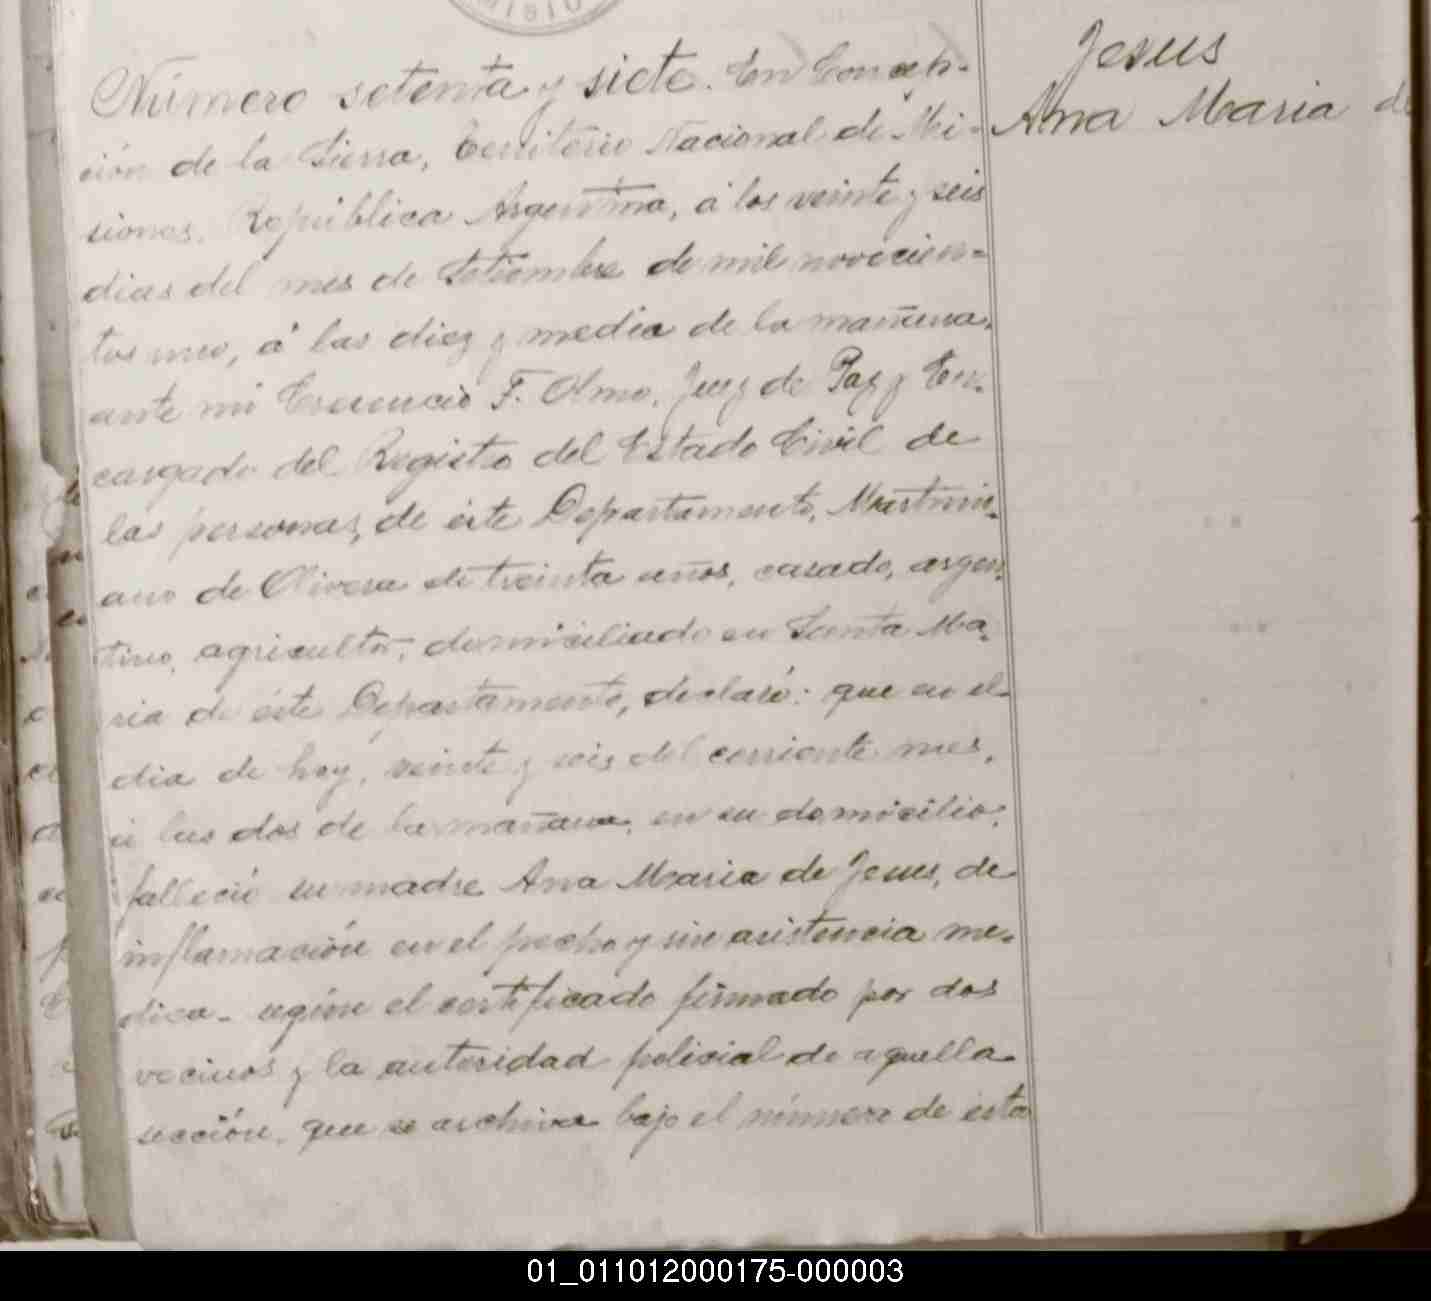 MISIO
Jesus
Ana Maria de
Número setenta y siete. En Concep-
ción de la Sierra, Territorio Nacional de Mi-
siones, República Argentina, á los veinte y seis
dias del mes de Setiembre de mil novecien-
tos uno, á las diez y media de la mañana,
ante mi F. Olmo, Juez de Paz y En-
cargado del Registro del Estado Civil de
las personas, de éste Departamento,
ano de Olivera de treinta años, casado, argen-
tino, agricultor, domiciliado en Santa Ma-
ria de éste Departamento, declaró: que en el
dia de hoy, veinte y seis del corriente mes,
á las dos de la mañana, en su domicilio,
falleció su madre Ana Maria de Jesus, de
inflamación en el pecho y sin asistencia me-
dica - según el certificado firmado por dos
vecinos y la autoridad policial de aquella
sección, que se archiva bajo el número de esta
01_011012000175-000003